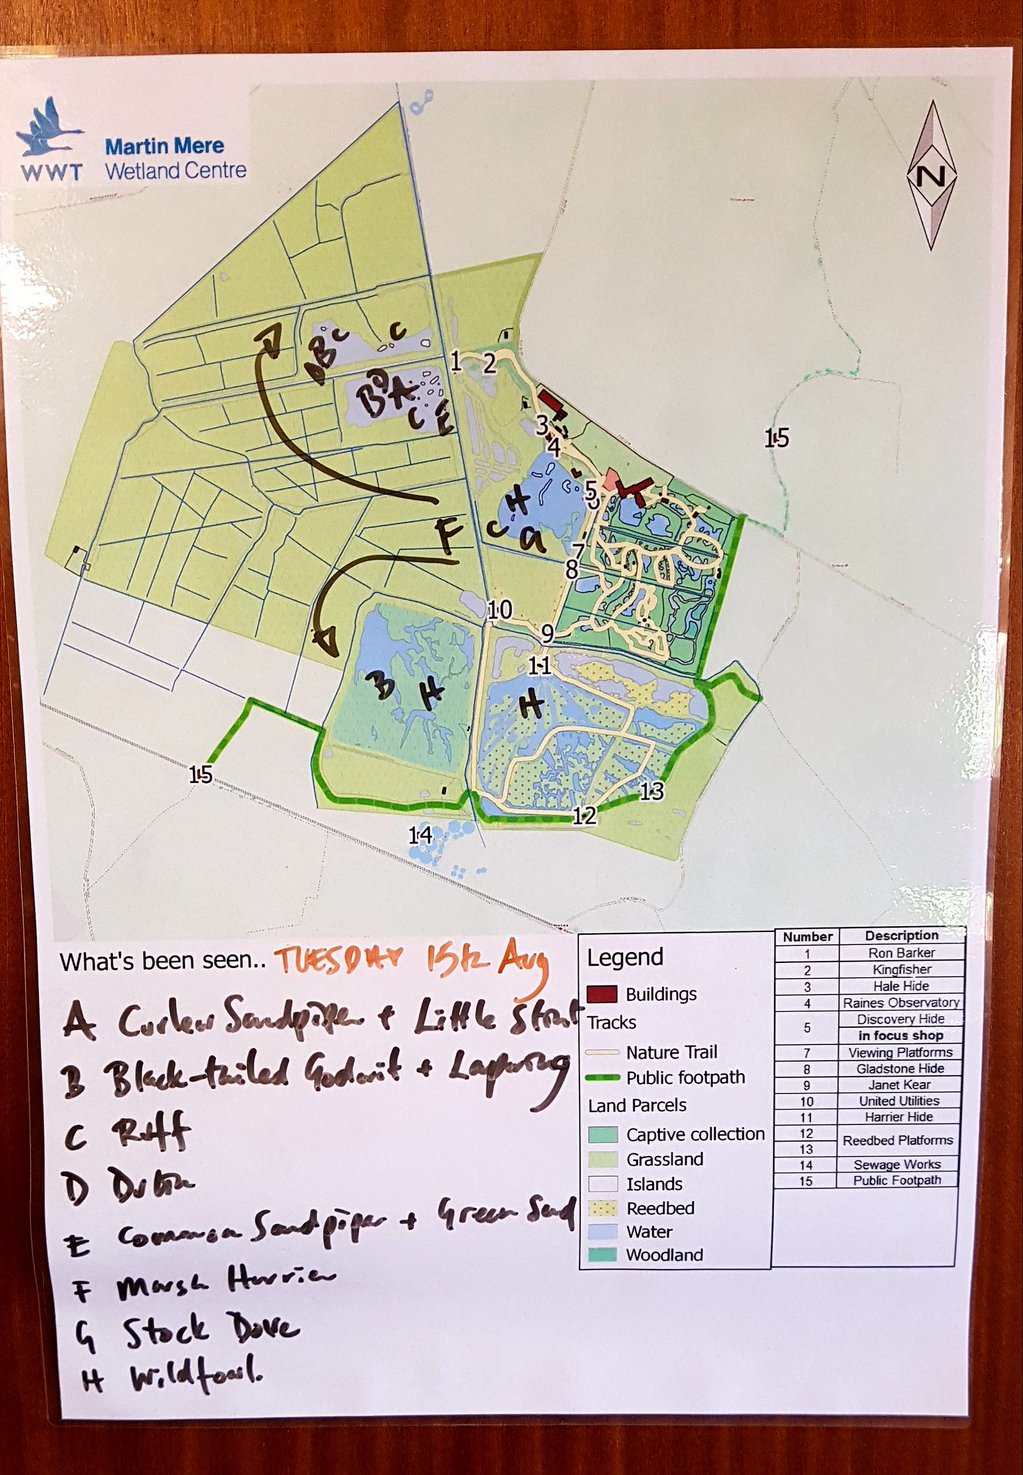 WWT
Martin Mere
Wetland Centre
N
D B C
C
B D A
C
E
1
2
3
4
15
5
H
C
G
F
7
8
10
9
11
B
H
H
15
13
12
14
What's been seen.. TUESDAY 15th Aug
A Curlew Sandpiper + Little Stint
B Black-tailed Godwit + Lapwing
C Ruff
D Dunlin
E Common Sandpiper + Green Sand
F Marsh Harrier
G Stock Dove
H Wildfowl.
Legend
Buildings
Tracks
Nature Trail
Public footpath
Land Parcels
Captive collection
Grassland
Islands
Reedbed
Water
Woodland
Number Description
1 Ron Barker
2 Kingfisher
3 Hale Hide
4 Raines Observatory
5 Discovery Hide
in focus shop
7 Viewing Platforms
8 Gladstone Hide
9 Janet Kear
10 United Utilities
11 Harrier Hide
12 Reedbed Platforms
13
14 Sewage Works
15 Public Footpath